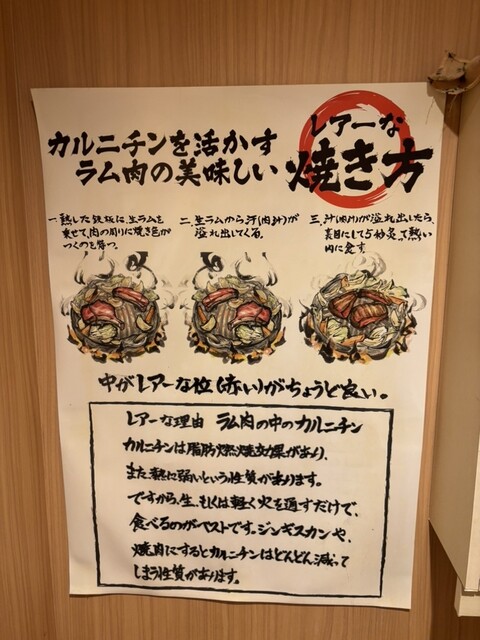 カルニチンを活かす
ラム肉の美味しい
レアーな
焼き方
一.熱した鉄板に、生ラムを
乗せて、肉の周りに焼き色が
つくのを待つ。
二.生ラムから汗(肉汁)が
溢れ出してくる。
三.汁(肉汁)が溢れ出したら、
裏目にして5秒灸って熱い
内に食す。
中がレアーな位(赤い)がちょうど良い。
レアーな理由 ラム肉の中のカルニチン
カルニチンは脂肪燃焼効果があり、
また、熱に弱いという性質があります。
ですから、生、もしくは軽く火を通すだけで、
食べるのがベストです。ジンギスカンや、
焼肉にするとカルニチンはどんどん減って
しまう性質があります。